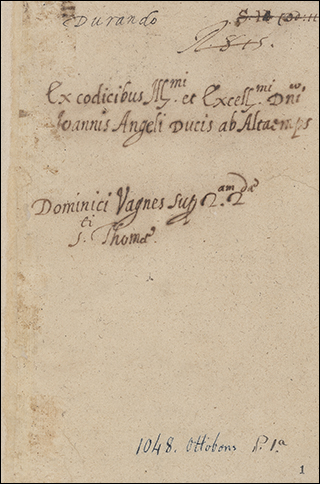 Durando
Ex codicibus Ill.mi et Excell.mi Dni
Joannis Angeli Ducis ab Altaemps
Dominici Vagnes sup 2.am 2æ
S.ti Thomæ
1048. Ottobon P. 1.a
1